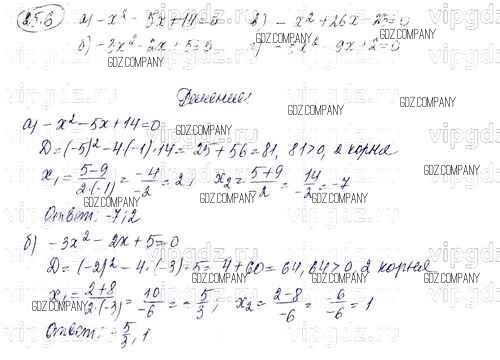 25.6 а) -x² - 5x + 14 = 0 в) -x² + 26x - 25 = 0
б) -3x² - 2x + 5 = 0 г) -5x² - 9x + 2 = 0
GDZ.COMPANY GDZ.COMPANY GDZ.COMPANY
Решение:
а) -x² - 5x + 14 = 0
D = (-5)² - 4(-1)·14 = 25 + 56 = 81, 81 > 0, 2 корня
x₁ = (5-9)/(2·(-1)) = -4/-2 = 2; x₂ = (5+9)/-2 = 14/-2 = -7
Ответ: -7; 2
б) -3x² - 2x + 5 = 0
D = (-2)² - 4·(-3)·5 = 4 + 60 = 64, 64 > 0, 2 корня
x₁ = (2+8)/(2·(-3)) = 10/-6 = -5/3; x₂ = (2-8)/-6 = -6/-6 = 1
Ответ: -5/3, 1